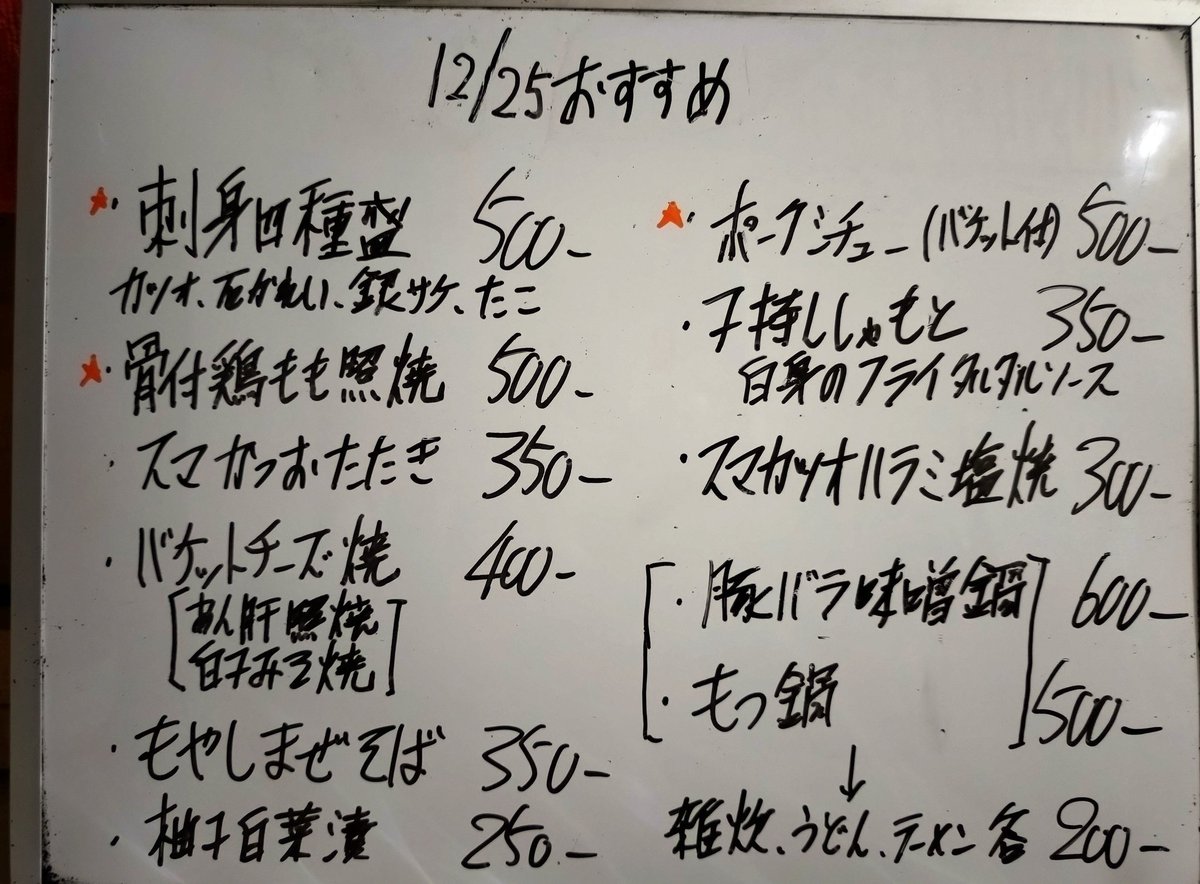 12/25おすすめ
★・刺身四種盛 500-
カツオ、石かれい、銀サケ、たこ
★・骨付鶏もも照焼 500-
・スマかつおたたき 350-
・バケットチーズ焼 400-
[あん肝照焼
白子みそ焼]
・もやしまぜそば 350-
・柚子白菜漬 250-
★・ポークシチュー(バケット付) 500-
・子持ししゃもと 350-
白身のフライタルタルソース
・スマカツオハラミ塩焼 300-
[・豚バラ味噌鍋] 600-
[・もつ鍋] 500-
↓
雑炊、うどん、ラーメン各 200-